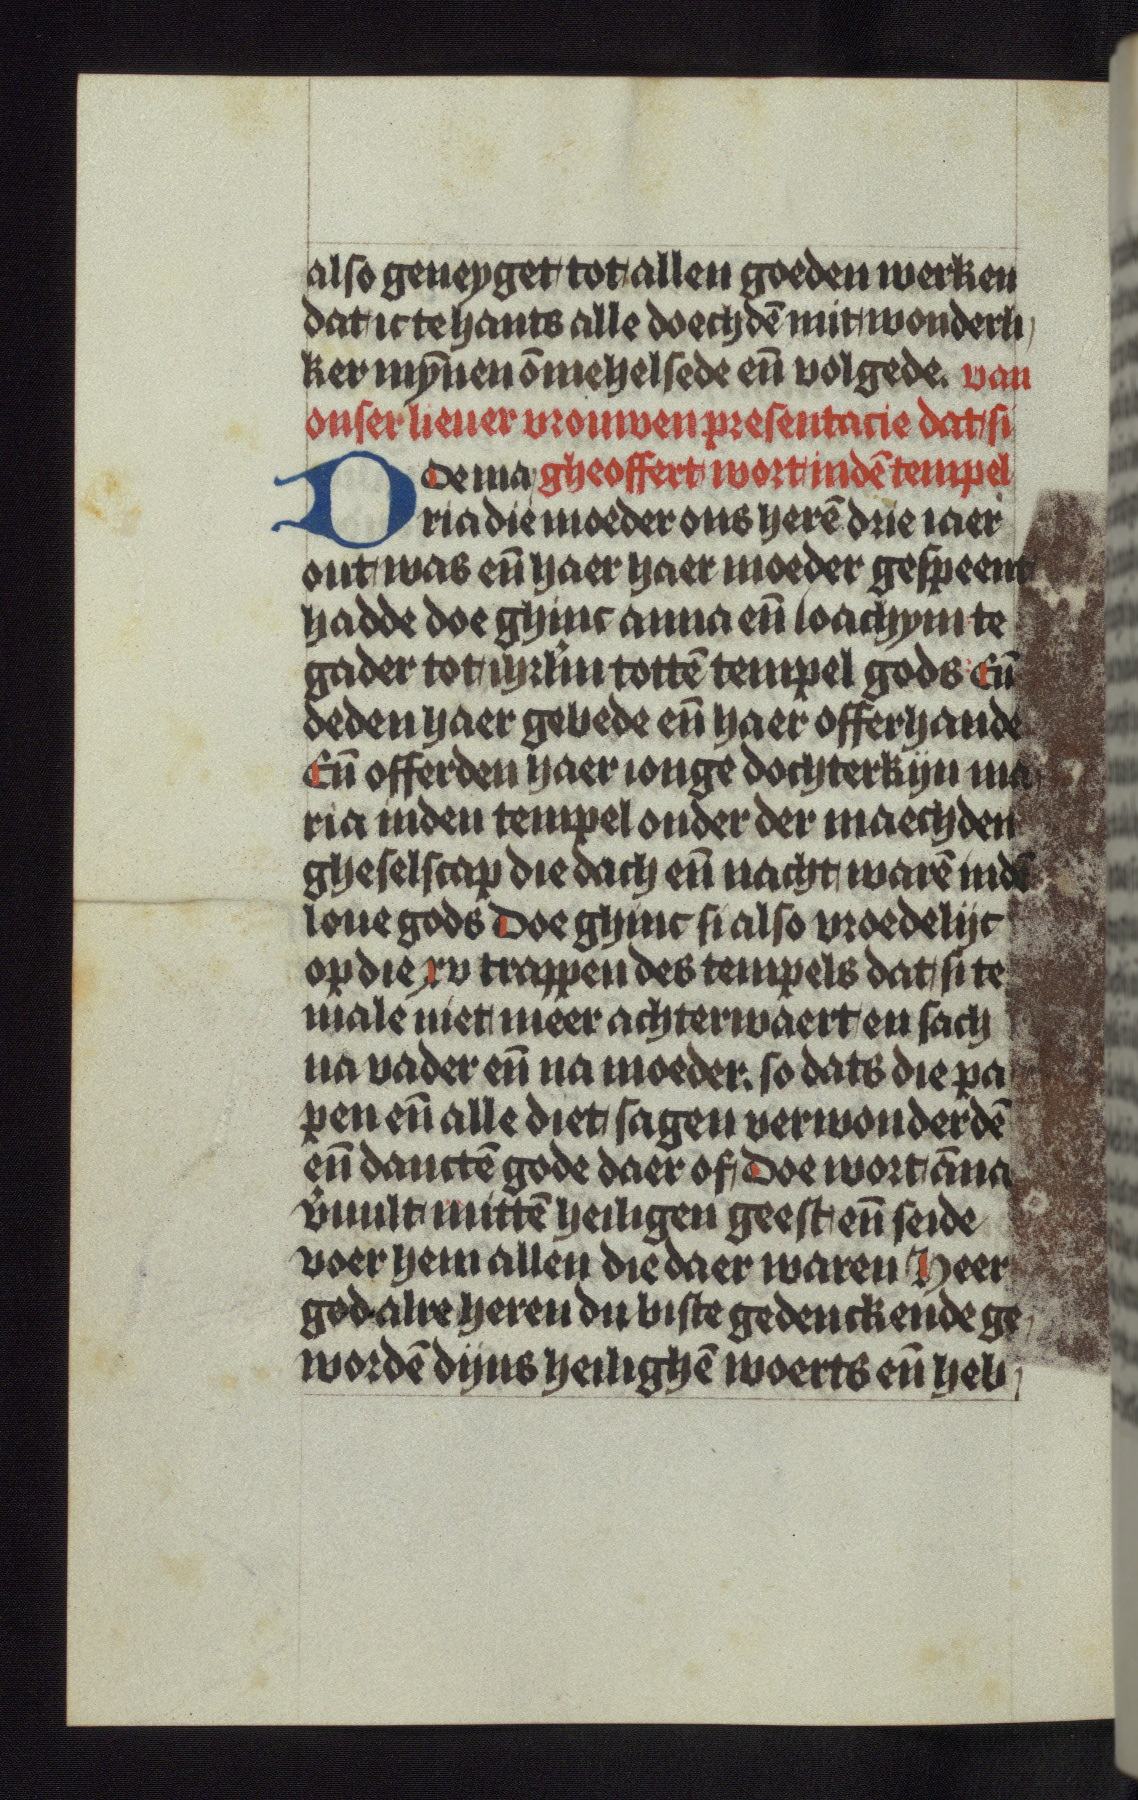 also geneyget tot allen goeden werken
dat ic te hants alle doechdē mit wonderli
ker mȳnen ōmehelsede eñ volgede. van
onser lieuer vrouwen presentacie dat si
DOe ma gheoffert wort indē tempel
ria die moeder ons herē drie iaer
out was eñ haer haer moeder gespeent
hadde doe ghinc anna eñ ioachym te
gader tot ihrlm̄ tottē tempel gods Eñ
deden haer gebede eñ haer offerhande
Eñ offerden haer ionge dochterkijn ma
ria inden tempel onder der maechden
gheselscap die dach eñ nacht warē indē
loue gods Doe ghinc si also vroedelijc
op die xv trappen des tempels dat si te
male niet meer achterwaert en sach
na vader eñ na moeder. so dats die pa
pen eñ alle diet sagen verwonderdē
eñ dancten̄ gode daer of Doe wort āna
v̄uult mittē heiligen geest eñ seide
voer hem allen die daer waren Heer
god alre heren du biste gedenckende ge
wordē dijns heilighē woerts eñ heb